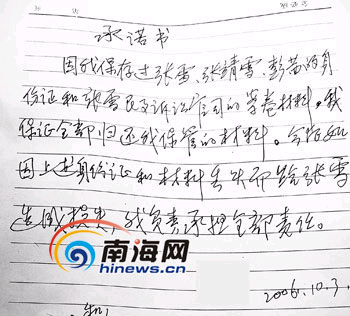 承诺书
因我保存过张雪、张靖雪、彭茜的身
份证和张雪民及诉讼官司的案卷材料。我
保证全部归还我保管的材料。今后如
因上述身份证和材料丢失而给张雪
造成损失,我负责承担全部责任。
南海网
hinews.cn
2006.10.3.